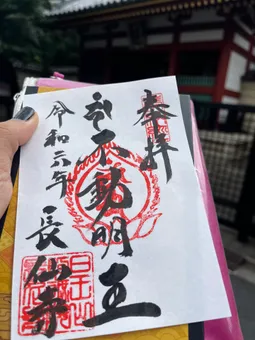 奉拝
不動明王
令和六年
長仙寺